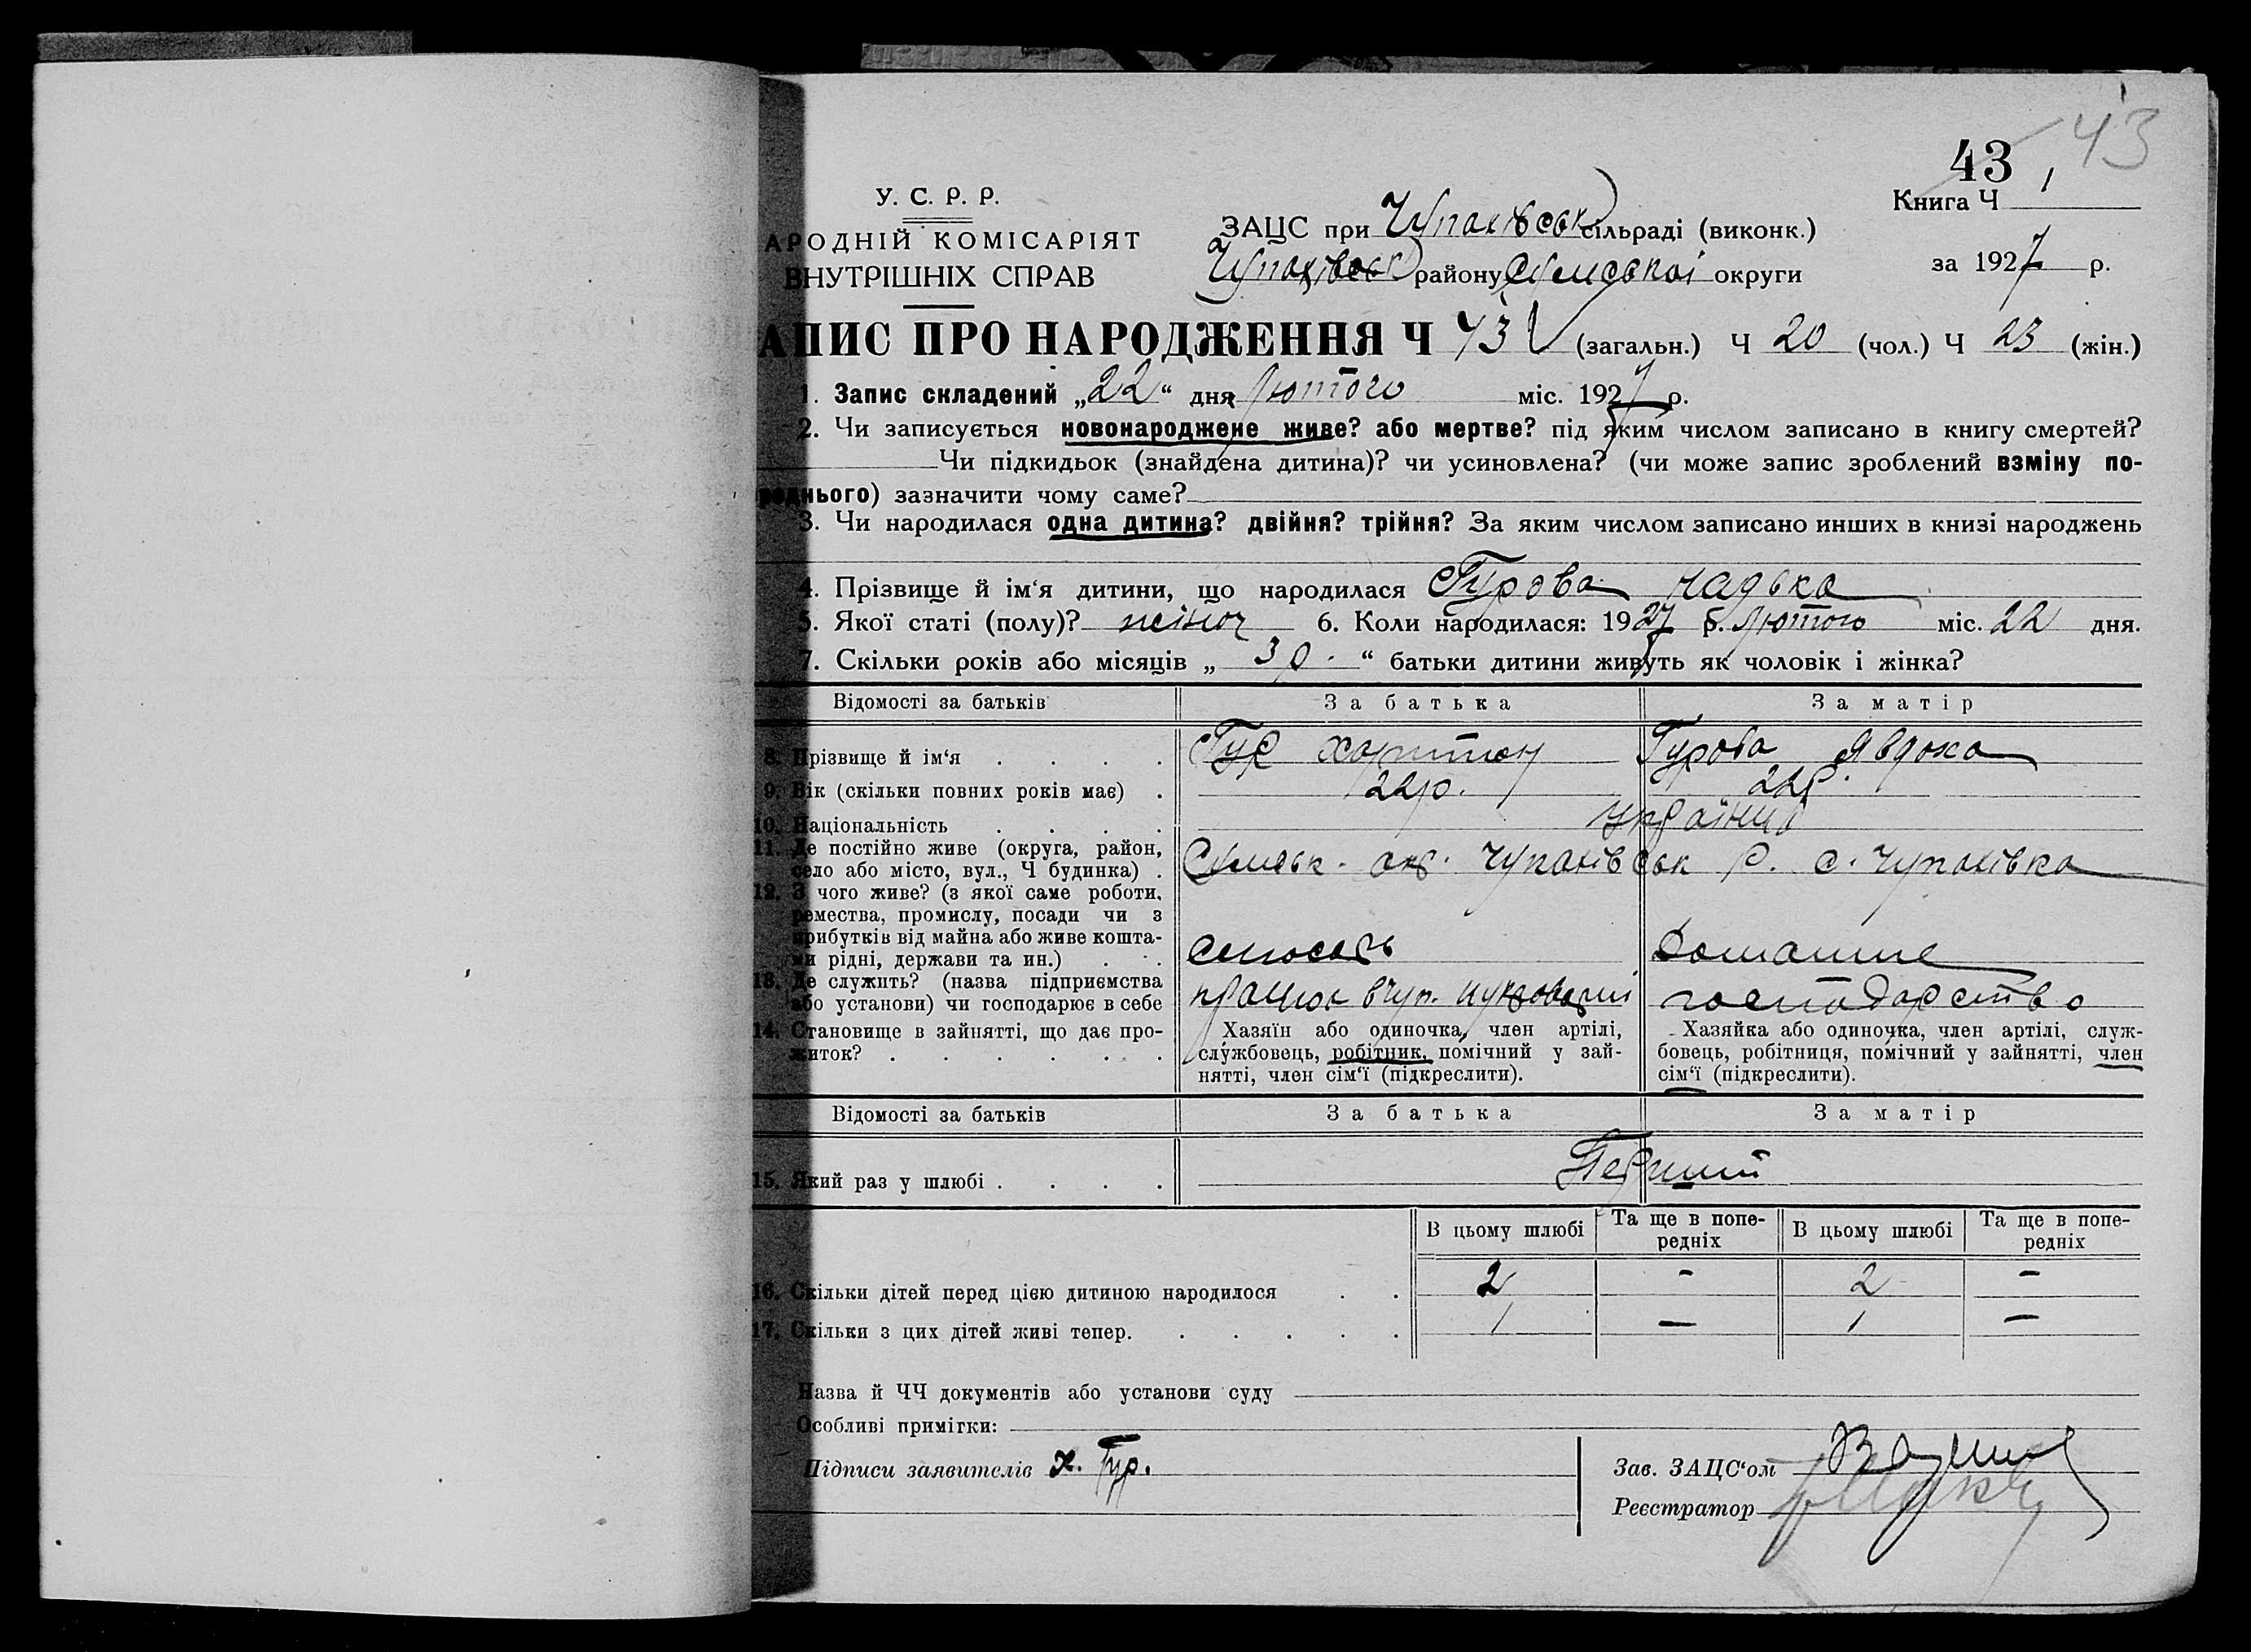 43
43
У. С. Р. Р.
Книга Ч 1
АРОДНІЙ КОМІСАРІЯТ
ВНУТРІШНІХ СПРАВ
ЗАЦС при Чупахівськ сільраді (виконк.)
Чупахівськ району Сумської округи
за 1927 р.
АПИС ПРО НАРОДЖЕННЯ Ч 43 (загальн.) Ч 20 (чол.) Ч 23 (жін.)
1. Запис складений „22“ дня лютого міс. 1927 р.
2. Чи записується новонароджене живе? або мертве? під яким числом записано в книгу смертей?
Чи підкидьок (знайдена дитина)? чи усиновлена? (чи може запис зроблений взміну по-
реднього) зазначити чому саме?
3. Чи народилася одна дитина? двійня? трійня? За яким числом записано инших в книзі народжень
4. Прізвище й ім‘я дитини, що народилася Гурова Надька
5. Якої статі (полу)? жіноч 6. Коли народилася: 1927 р. лютого міс. 22 дня.
7. Скільки років або місяців „ 3 р. “ батьки дитини живуть як чоловік і жінка?
Відомості за батьків За батька За матір
8. Прізвище й ім‘я . . . . Гур Харитон Гурова Явдоха
9. Вік (скільки повних років має) . 22 р. 22 р.
10. Національність . . . . українці
11. Де постійно живе (округа, район,
село або місто, вул., Ч будинка) . Сумськ. окр. Чупахівськ р. с. Чупахівка
12. З чого живе? (з якої саме роботи,
ремества, промислу, посади чи з
прибутків від майна або живе кошта-
ми рідні, держави та ин.) . . слюсарь Домашнє
13. Де служить? (назва підприємства
або установи) чи господарює в себе працює в Чуп. цукроварні господарство
14. Становище в зайнятті, що дає про-
житок? . . . . . .
Хазяїн або одиночка, член артілі,
службовець, робітник, помічний у зай-
нятті, член сім‘ї (підкреслити).
Хазяйка або одиночка, член артілі, служ-
бовець, робітниця, помічний у зайнятті, член
сім‘ї (підкреслити).
Відомості за батьків За батька За матір
15. Який раз у шлюбі . . . . Перший
В цьому шлюбі Та ще в попе-
редніх В цьому шлюбі Та ще в попе-
редніх
16. Скільки дітей перед цією дитиною народилося . . 2 - 2 -
17. Скільки з цих дітей живі тепер. . . . . . 1 — 1 —
Назва й ЧЧ документів або установи суду
Особливі примітки:
Підписи заявителів Х. Гур.
Зав. ЗАЦС‘ом
Реєстратор